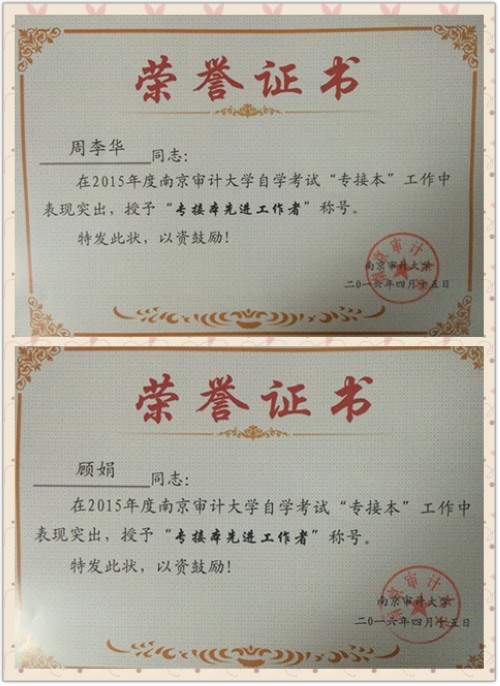 荣誉证书
周李华 同志：
在2015年度南京审计大学自学考试“专接本”工作中
表现突出，授予“专接本先进工作者”称号。
特发此状，以资鼓励！
南京审计大学
二〇一六年四月十五日
荣誉证书
顾娟 同志：
在2015年度南京审计大学自学考试“专接本”工作中
表现突出，授予“专接本先进工作者”称号。
特发此状，以资鼓励！
南京审计大学
二〇一六年四月十五日